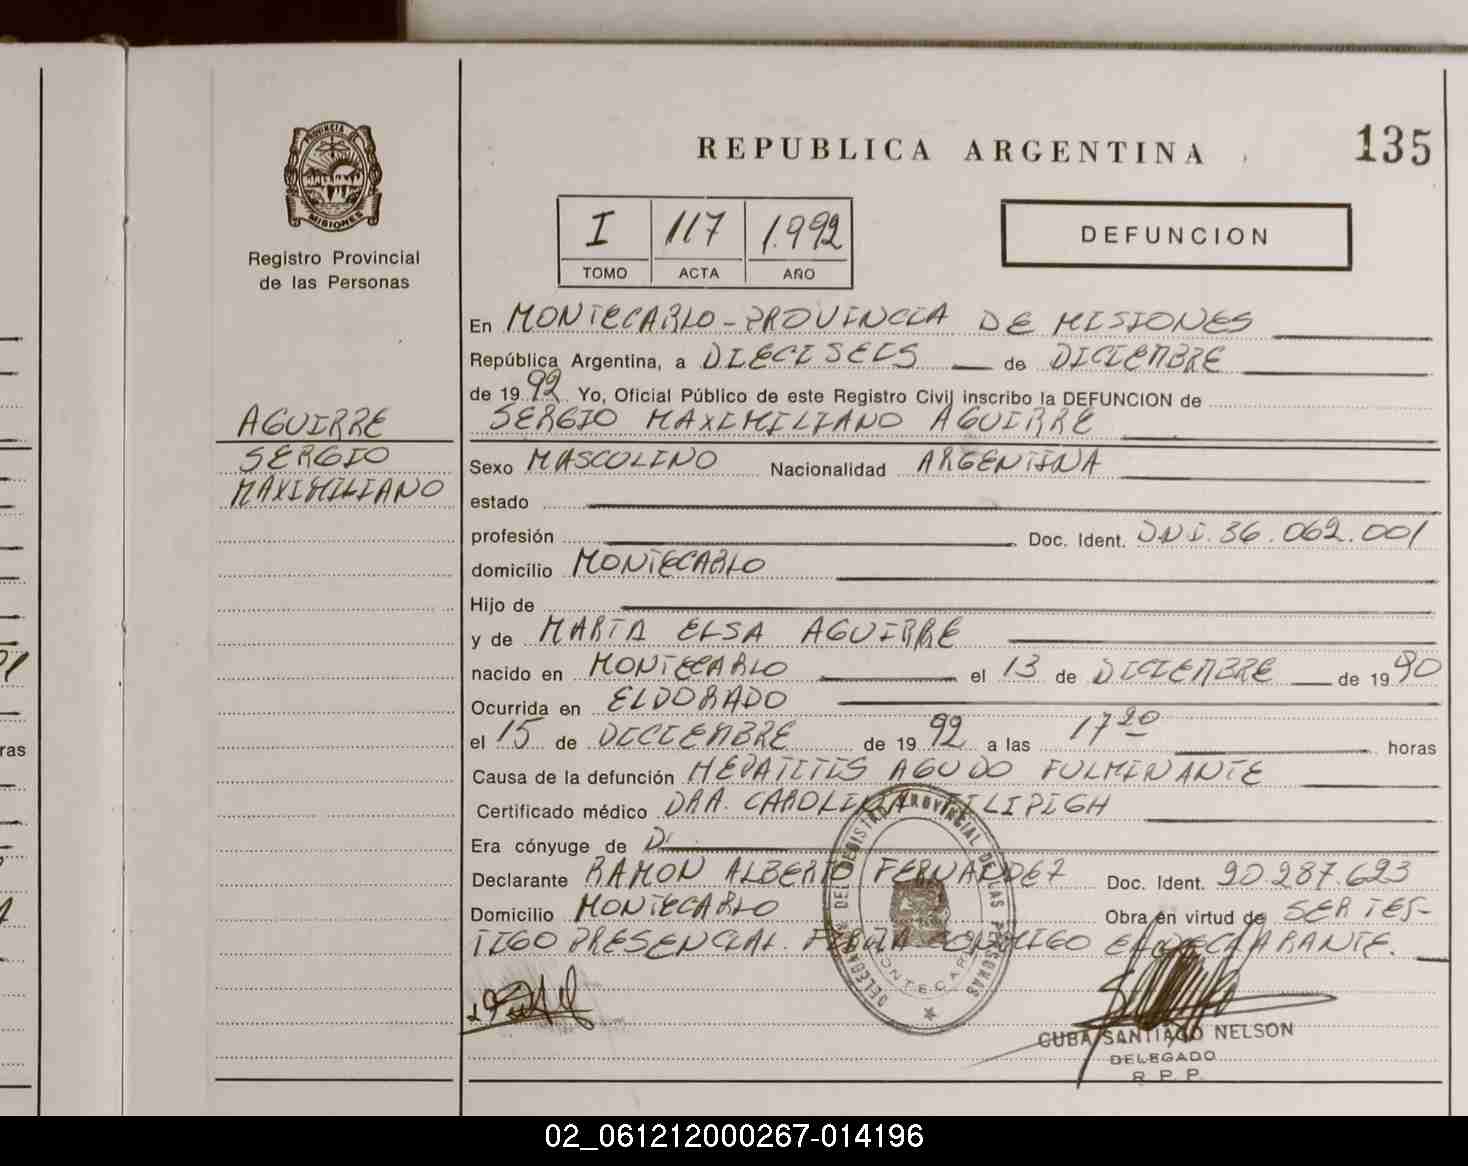 PROVINCIA DE
MISIONES
Registro Provincial
de las Personas
AGUIRRE
SERGIO
MAXIMILIANO
REPUBLICA ARGENTINA
135
I 117 1.992
TOMO ACTA AÑO
DEFUNCION
En MONTECARLO - PROVINCIA DE MISIONES
República Argentina, a DIECISEIS de DICIEMBRE
de 19 92 Yo, Oficial Público de este Registro Civil inscribo la DEFUNCION de
SERGIO MAXIMILIANO AGUIRRE
Sexo MASCOLINO Nacionalidad ARGENTINA
estado
profesión Doc. Ident. DNI. 36.062.001
domicilio MONTECARLO
Hijo de
y de MARTA ELSA AGUIRRE
nacido en MONTECARLO el 13 de DICIEMBRE de 19 90
Ocurrida en ELDORADO
el 15 de DICIEMBRE de 19 92 a las 17 20 horas
Causa de la defunción HEPATITIS AGUDO FULMINANTE
Certificado médico DRA. CAROLINA FILIPIGH
Era cónyuge de
Declarante RAMON ALBERTO FERNANDEZ Doc. Ident. 20 287.623
Domicilio MONTECARLO Obra en virtud de SER TES-
TIGO PRESENCIAL. FIRMA CONMIGO EL DECLARANTE.
DELEGADO DEL REGISTRO PROVINCIAL DE LAS PERSONAS
MONTECARLO
CUBA SANTIAGO NELSON
DELEGADO
R. P. P.
ras
02_061212000267-014196